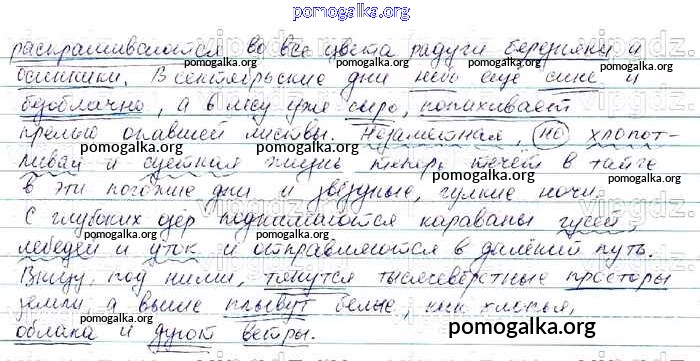 pomogalka.org
раскрашиваются во все цвета радуги березняки и
pomogalka.org pomogalka.org
осинники. В сентябрьские дни небо еще сине и
безоблачно, а в лесу уже сыро, попахивает
pomogalka.org pomogalka.org
прелью опавшей листвы. Незаметная, но хлопот-
ливая и суетная жизнь теперь течет в тайге
pomogalka.org pomogalka.org
в эти погожие дни и звездные, гулкие ночи.
С глубоких озер поднимаются караваны гусей,
лебедей и уток и отправляются в далекий путь.
Внизу, под ними, тянутся тысячеверстные просторы
земли, а выше плывут белые, как хлопья,
облака и дуют ветры.
pomogalka.org
pomogalka.org